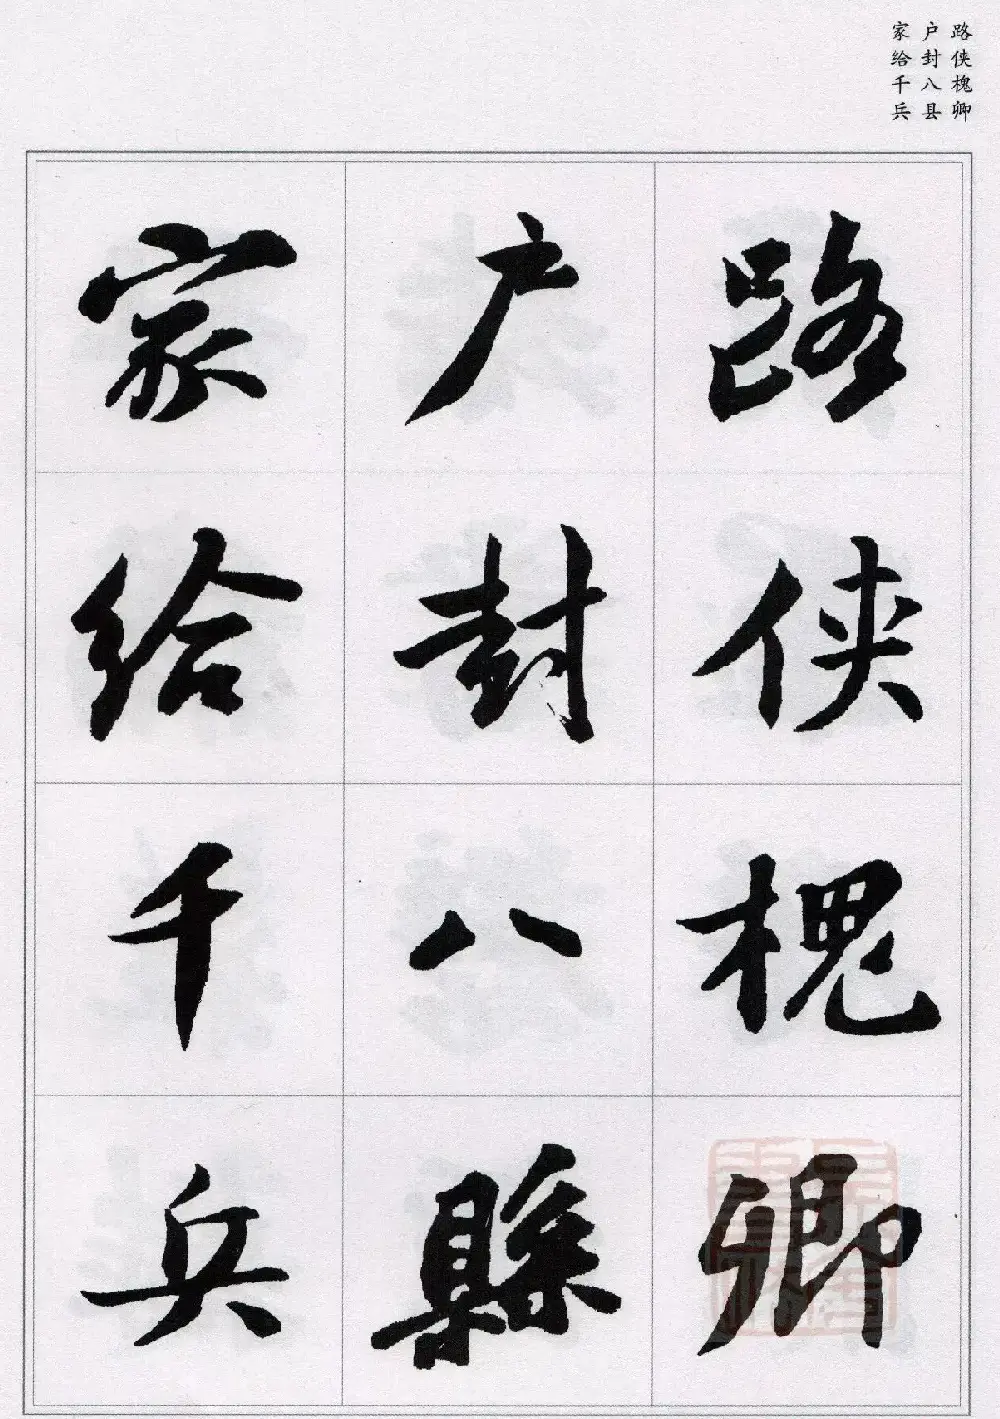 路侠槐卿
户封八县
家给千兵
路侠槐卿
户封八縣
家给千兵